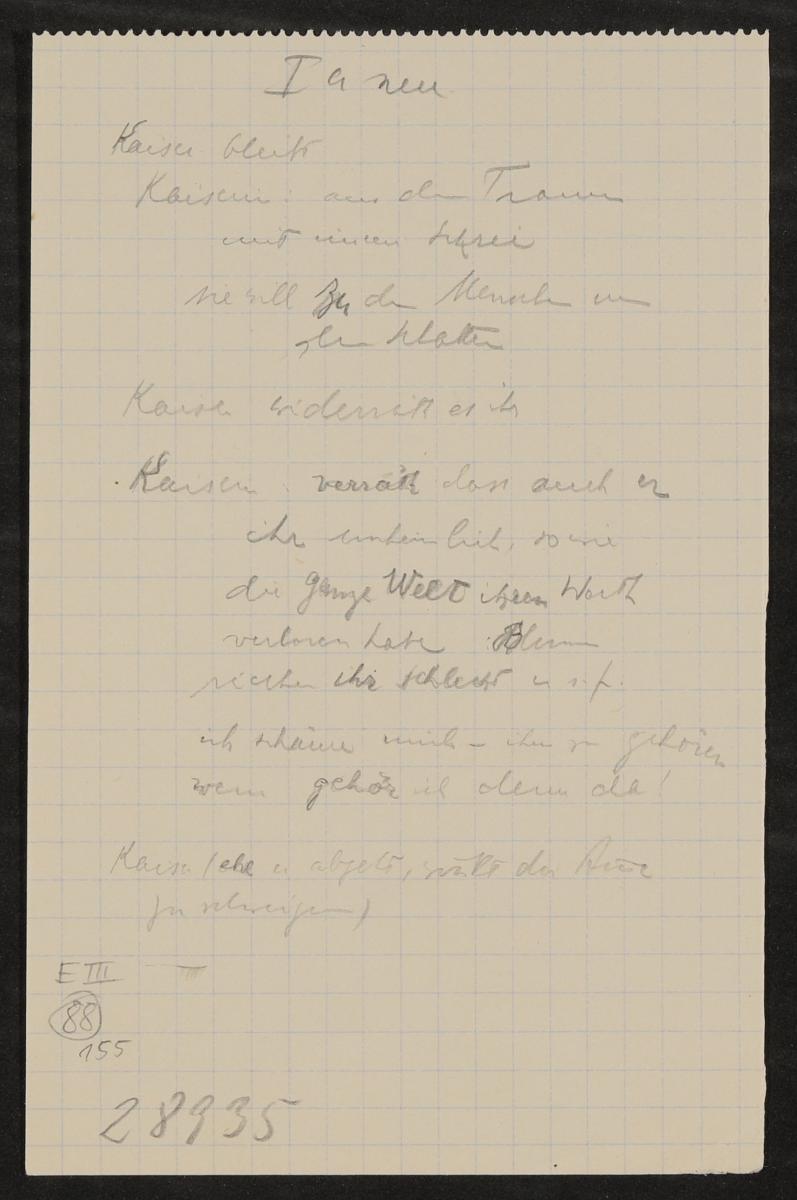 I a neu
Kaiser bleibt
Kaiserin: aus dem Traum
mit einem Schrei
sie will zu den Menschen um
den Schatten
Kaiser widerräth es ihr
Kaiserin: verräth dass auch er
ihr unheimlich, sowie
die ganze Welt ihren Werth
verloren habe: Blumen
riechen ihr schlecht u s. f.
ich schäme mich – ihm zu gehören
wem gehör ich denn da!
Kaiser (ehe er abgeht, winkt der Amme
zu schweigen)
E III
88
155
28935